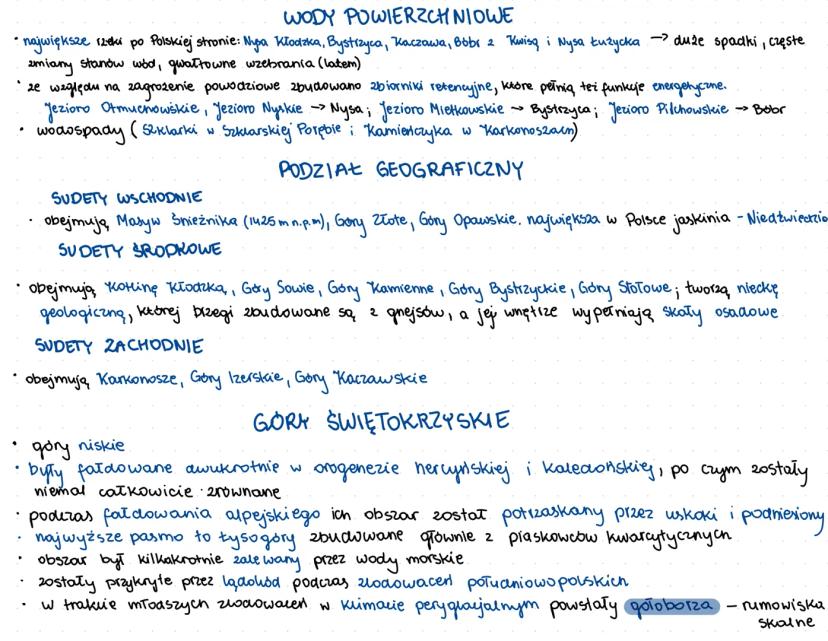 WODY POWIERZCHNIOWE
• największe rzeki po Polskiej stronie: Nysa Kłodzka, Bystrzyca, Kaczawa, Bóbr z Kwisą i Nysa Łużycka → duże spadki, częste
zmiany stanów wód, gwałtowne wzebrania (latem)
• ze względu na zagrożenie powodziowe zbudowano zbiorniki retencyjne, które pełnią też funkcje energetyczne.
Jezioro Otmuchowskie, Jezioro Nyskie → Nysa; Jezioro Mietkowskie → Bystrzyca; Jezioro Pilchowskie → Bóbr
• wodospady (Szklarki w Szklarskiej Porębie i Kamieńczyka w Karkonoszach)
PODZIAŁ GEOGRAFICZNY
SUDETY WSCHODNIE
• obejmują Masyw Śnieżnika (1425 m n.p.m), Góry Złote, Góry Opawskie. największa w Polsce jaskinia - Niedźwiedzia
SUDETY ŚRODKOWE
• obejmują Kotlinę Kłodzką, Góry Sowie, Góry Kamienne, Góry Bystrzyckie, Góry Stołowe; tworzą nieckę
geologiczną, której brzegi zbudowane są z gnejsów, a jej wnętrze wypełniają skały osadowe
SUDETY ZACHODNIE
• obejmują Karkonosze, Góry Izerskie, Góry Kaczawskie
GÓRY ŚWIĘTOKRZYSKIE
• góry niskie
• były fałdowane dwukrotnie w orogenezie hercyńskiej i kaledońskiej, po czym zostały
niemal całkowicie zrównane
• podczas fałdowania alpejskiego ich obszar został potrzaskany przez uskoki i podniesiony
• najwyższe pasmo to Łysogóry zbudowane głównie z piaskowców kwarcytycznych
• obszar był kilkakrotnie zalewany przez wody morskie
• zostały przykryte przez lądolód podczas zlodowaceń południowopolskich
• w trakcie młodszych zlodowaceń w klimacie peryglacjalnym powstały gołoborza – rumowiska
skalne